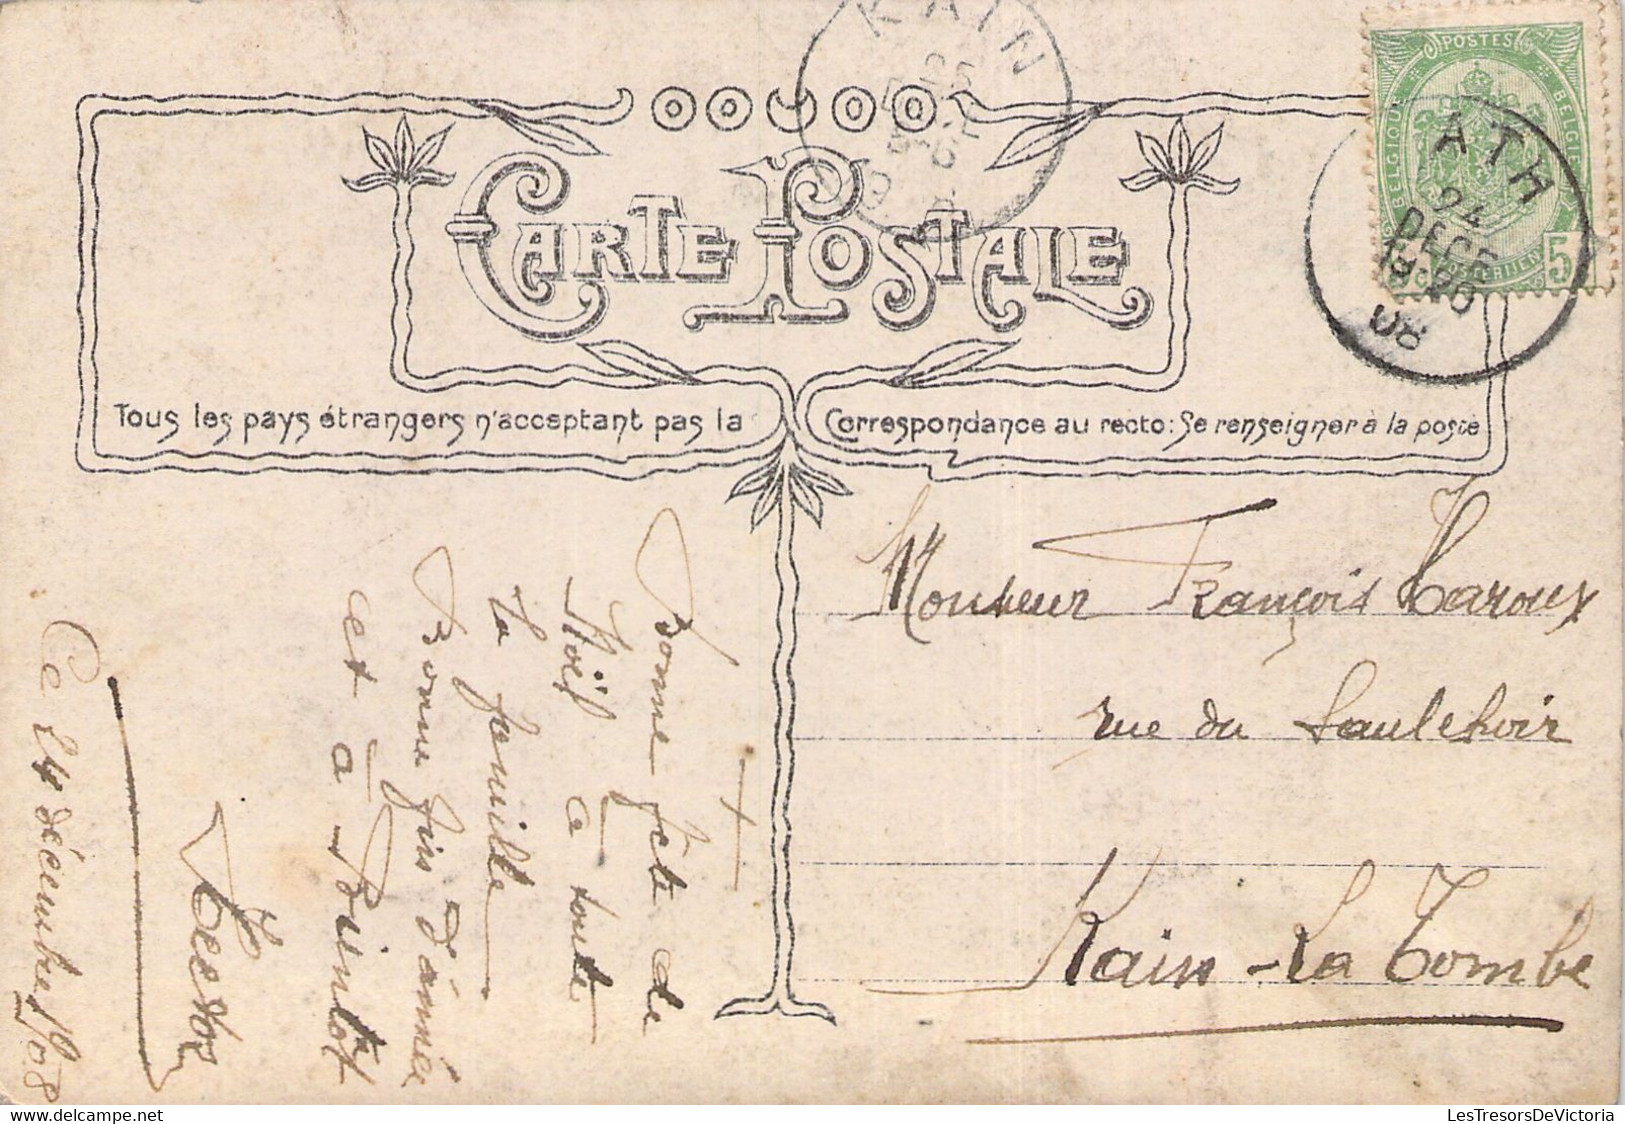 KAIN
CARTE POSTALE
POSTES
BELGIQUE
BELGIE
5
ATH
24
DECE
08
Tous les pays étrangers n'acceptant pas la Correspondance au recto: Se renseigner à la poste
Bonne fête de
Noël à toute
la famille
Bonne fin d'année
et à Bientôt
Ce 24 décembre 1908
Monsieur François
rue du Saulchoir
Kain-la Tombe
LesTresorsDeVictoria
www.delcampe.net